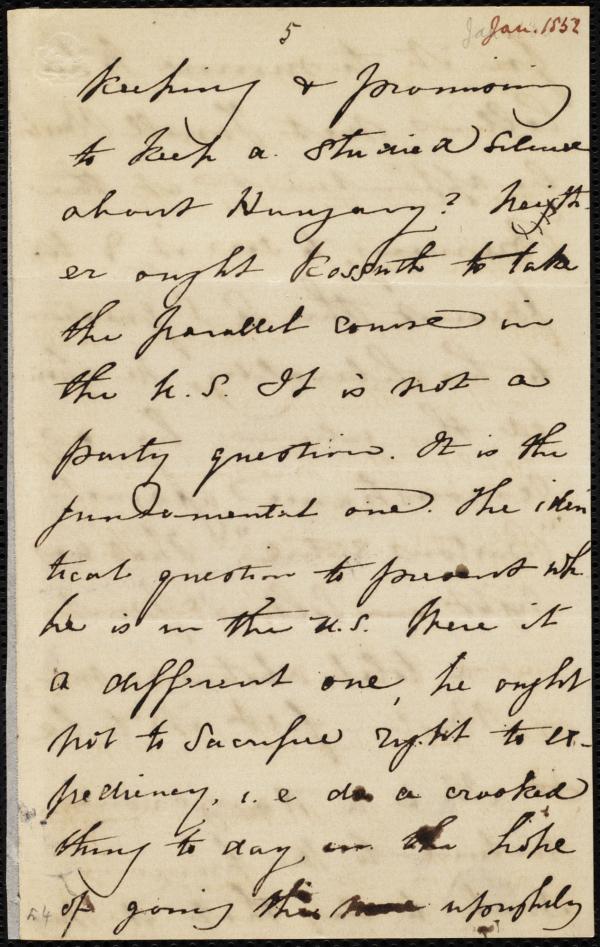 5
Jan. 1852
keeping & promising
to keep a studied silence
about Hungary? Neith-
er ought Kossuth to take
the parallel course in
the U.S. It is not a
party question. It is the
fundamental one. The iden
tical question to present wh
he is in the U.S. Were it
a different one, he ought
not to sacrifice right to ex-
pediency, i.e do a crooked
thing to day in the hope
of going uprightly
54